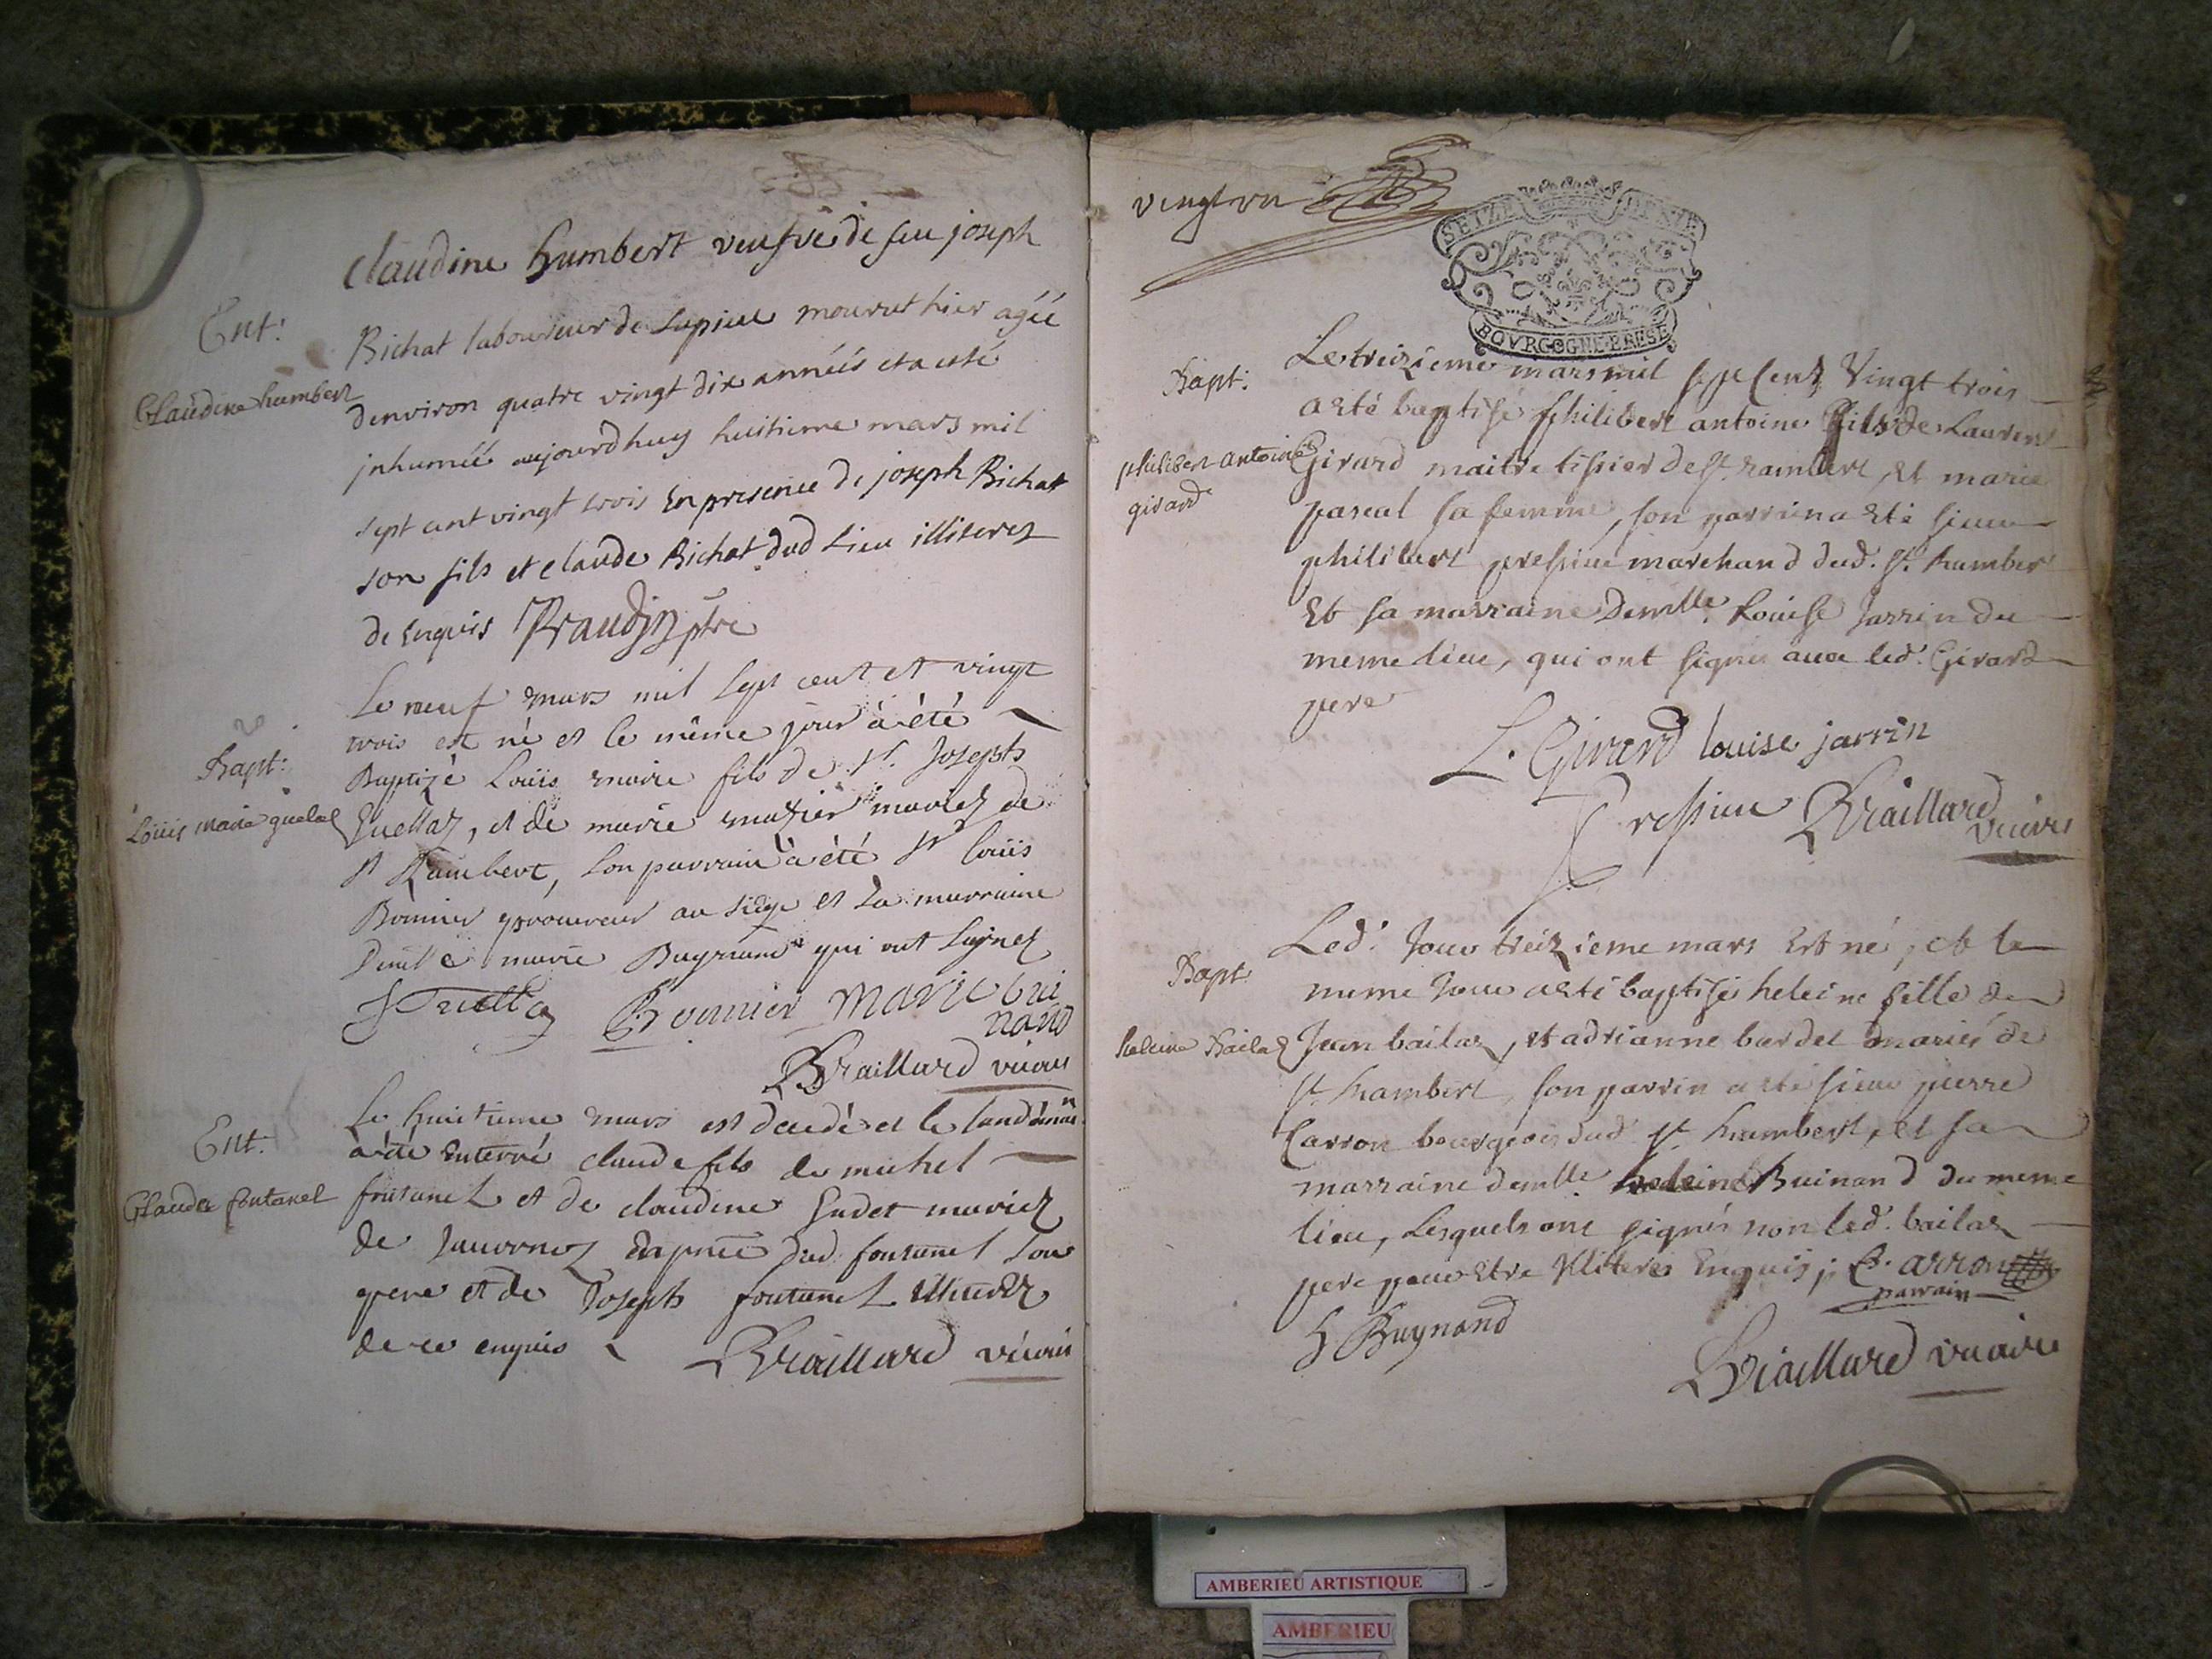 claudine humbert veufve de feu joseph
Ent:
Bichat laboureur de Lupieu mourut hier agée
Claudine humbert
denviron quatre vingt dix années et a esté
jnhumée aujourdhuy huitieme mars mil
sept cent vingt trois En presence de joseph Bichat
son fils et claude Bichat dud Lieu illiterez
de Enquis Praudin ptre
Le neuf mars mil sept cent et vingt
trois est né et le même jour à été
Bapt:
Baptizé Loüis marie fils de Sr. Joseph
Loüis Marie
et de marie mariez de
St Rambert, son parrain à été Sr loüis
Bonnier procureur au siège et sa marraine
Demlle marie Buynand qui ont signez
Bonnier Marie bui
nand
Braillard vicaire
Le huitieme mars est decedé et le landemain
Ent.
à été Enterré claude fils de michel
Claude fontanel
fontanel et de claudine Gudet mariez
de En pnce dud. fontanel son
pere et de Joseph fontanel illiterez
de ce enquis Braillard vicaire
vingt un
SEIZE
BOVRGOGNE BRESSE
Le treizieme mars mil sept cent Vingt trois
Bapt:
a esté baptisé philibert antoine fils de Laurent
philibert antoine
girard
Girard maitre tissier de St. rambert, et marie
pascal sa femme, son parrain a eté sieur
philibert pressieu marchand dud. St. Rambert
Et sa marraine Demlle. Louise Jarrin du
meme lieu, qui ont signés avec led. Girard
pere
L. Girard louise jarrin
Pressieu Braillard
vicaire
Led. Jour treizieme mars Est né, et le
Bapt
meme Jour a esté baptisée heleine fille de
heleine Bailaz
Jean bailaz, et adrianne bardet mariés de
St. Rambert, son parrin a eté sieur pierre
Carron bourgeois dud. St. Rambert, et sa
marraine demlle heleine Buinand du meme
lieu, Lesquels ont signés non led. bailaz
pere pour Etre Illiterés Enquis; C. arron
parrain
h Buynand
Braillard vicaire
AMBERIEU ARTISTIQUE
AMBERIEU